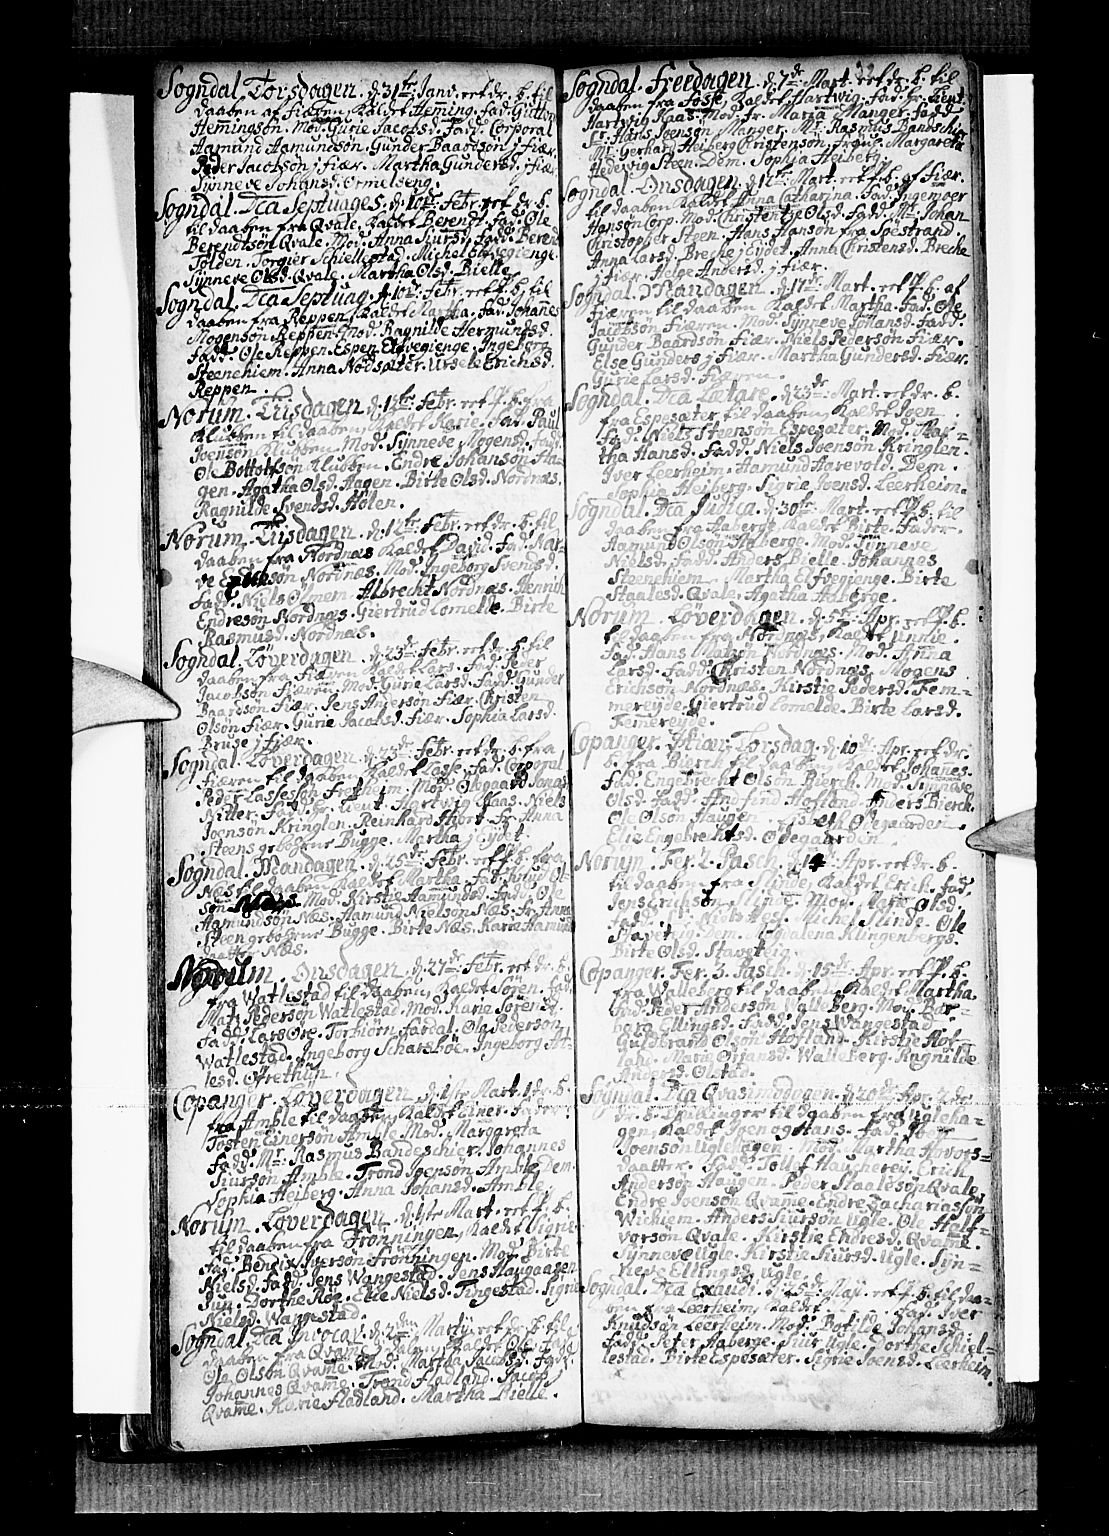 Sogndal. Torsdagen. d. 31te Janv. et dr. b. til
daaben af Fiæren, Kaldet Heming. fad. Guttorm
Hemingsön. Mod. Gurie Jacobsd. fadd. Corporal
Aamund Aamundson. Gunder Baardson j fiær.
Peder Jacobson j fiær. Martha Gundersd. j fiær
Synneve Johansd. Ormelseng.
Sogndal. Dca Septuages. d. 10de Febr. et dr. b.
til daaben fra Qvale. Kaldet Berendt. fad. Ole
Berendtson Qvale. Mod. Anna Siursd. fadd. Berend
Tylden. Torgier Schiellestad. Michel Elvegienge.
Synneve Olsd. Qvale. Martha Olsd. Bielle.
Sogndal. Dca Septuag. d. 10de Febr. et P. b. til
daaben fra Reppen, Kaldet Martha. fad. Johanes
Mogenson Reppen. Mod. Ragnilde Hermundsd.
fadd. Ole Reppen. Espen Elvegienge. Ingeborg
Steenehiem. Anna Nodsæter. Ursele Erichsd.
Reppen.
Norum. Tiisdagen d. 12te Febr. et P. b. fra
Klubben til daaben, Kaldet Karie. fad. Paul
Joenson Klubben. Mod. Synneve Mogensd. fadd.
Ole Bottolfson Klubben. Endre Johanson Ha-
gen. Agatha Olsd. Hagen. Birte Olsd. Nordnæs.
Ragnilde Svendsd. Holen.
Norum. Tiisdagen. d. 12te Febr. et dr. b. til
daaben fra Nordnæs Kaldet David. fad. Nar-
ve Erichsön Nordnæs. Mod. Ingeborg Svendsd.
fadd. Niels Olmem. Albrecht Nordnæs. Henrich
Endreson Nordnæs. Giertrud Lomelde. Birte
Rasmusd. Nordnæs.
Sogndal. Løverdagen. d. 23de Febr. et dr. b. til
daaben fra Fiæren Kaldet Lars. fad. Peder
Jacobson Fiæren. Mod. Gurie Larsd. fadd. Gunder
Baardson Fiær. Jens Anderson Fiær. Christen
Olson Fiær. Gurie Jacobsd. Fiær. Sophia Larsd.
Bruse j fiær.
Sogndal. Løverdagen. d. 23de Febr. et dr. b. fra
Fiæren til daaben, Kaldet Lasse. fad. Corporal
Peder Lasseson Fretheim. Mod. Olegaard Jonæ
Ritter. fadd. Hr. Leut. Hartvig Kaas. Niels
Joenson Kringlen. Reinhard Hiort. Fr. Anna
Steens gebohrne Bugge. Martha j Eÿdet.
Sogndal. Mandagen. d. 25de Febr. et P. b. fra
Næs til daaben, Kaldet Martha. fad. Ol-
sön Næs. Mod. Kirstie Aamundsd. fadd. Ole
Aamundson Næs. Aamund Nielson Næs. Fr. Anna
Steen gebohrne Bugge. Birte Næs. Karie Aamund
daatter Næs.
Norum. Onsdagen. d. 27de Febr. et dr. b.
fra Watlestad til daaben, Kaldet Sören. fad.
Mats Pederson Watlestad. Mod. Karie Sörensd.
fadd. Lars Ore. Torbiorn fardal. Ole Pederson
Watlestad. Ingeborg Scharsböe. Ingeborg At-
lesd. Ofrethun.
Copanger. Løverdagen d. 1ste Mart. et dr. b.
fra Amble til daaben, Kaldet Einer. fader
Tosten Einerson Amble Mod. Margareta
fadd. Mr. Rasmus Bandeschier. Johannes
Siurson Amble. Trond Joenson Amble. Dem.
Sophia Heiberg. Anna Johansd. Amble.
Norum. Løverdagen. d. 1ste Mart. et P. b.
til daaben fra Frönningen, Kaldet Signe.
fad. Bendix Iversön Frönningen. Mod. Birte
Nielsd. fadd. Jens Wangestad. Jens Haugaagen
Siur. Dorthe Røe. Else Nielsd. Tingestad. Signe
Nielsd. Wangestad.
Sogndal. Dca Invocav. d. 2den Martij et dr. b. til
daaben fra Qvame, Kaldet Ole. fad.
Ole Olson Qvame. Mod. Martha Jacobsd. fadd.
Johannes Qvame. Trond Fladland. Jacob
Qvame. Karie Fladland. Martha Bielle.
Sogndal. Freedagen. d. 7de Mart. et dr. b. til
daaben fra Fosse, Kaldet Hartvig. fad. Hr. Leut.
Hartvih Kaas. Mod. Fr. Maria Manger. fadd.
Sr. Hans Joenson Manger. Mr. Rasmus Bandschier
Mr. Gerhard Heiberg Christenson. Jomfrue Margareta
Hedevig Steen. Dem. Sophia Heiberg.
Sogndal. Onsdagen. d. 12te Mart. et P. b. af Fiær.
til daaben Kaldet Anna Catharina. fad. Ingemoer
Hanson Corp. Mod. Christentze Olsd. fadd. Mr. Johan
Christopher Steen. Hans Hanson fra Spestrand.
Anna Larsd. Breche j Eÿdet. Anna Christensd. Breche
j fiær. Helge Andersd. j fiær.
Sogndal. Mandagen. d. 17de Mart. et P. b. af
Fiæren til daaben Kaldet Martha. fad. Ole
Jacobson Fiæren. Mod. Synneve Johansd. fadd.
Gunder Baardson Fiær. Niels Pederson Fiær.
Else Gunders j fiær. Martha Gundersd. Fiær.
Gurie Larsd. Fiæren.
Sogndal. Dca Lætare. d. 23de Mart. et dr. b.
fra Espesæter til daaben, Kaldet Joen.
fad. Niels Steenson Espesæter. Mod. Mar-
tha Hansd. fadd. Niels Joenson Kringlen.
Iver Leerheim. Aamund Harevold. Dem.
Sophia Heiberg. Sigrie Joensd. Leerheim.
Sogndal. Dca Judica. d. 30te Mart. et P. b. til
daaben fra Aaberge Kaldet Birte. Fader
Aamund Olson Aaberge. Mod. Synneve
Nielsd. fadd. Anders Bielle. Johannes
Steenehiem. Martha Elfvegienge. Birte
Staalesd. Qvale. Agatha Aaberge.
Norum. Løverdagen. d. 5te Apr. et P. b.
til daaben fra Nordnæs, Kaldet Unnie.
fad. Hans Matson Nordnæs. Mod. Anna
Larsd. fadd. Christen Nordnæs. Mogens
Erichson Nordnæs. Kirstie Pedersd. Fem-
mereÿde. Giertrud Lomelde. Birte Larsd.
Femereÿde.
Copanger. Skiær Torsdag. d. 10de Apr. et dr.
b. fra Bierch til daaben, Kaldet Johanes.
fad. Engebrecht Olson Bierch. Mod. Synneve
Olsd. fadd. Andfind Hofland. Anders Bierch.
Ole Olson Haugen. Lisbeth Ödegaarden.
Eliz Engebrechtsd. Ödegaarden.
Norum. Fer. 2. Pasch. d. 14 Apr. et dr. b.
til daaben fra Slinde, Kaldet Erich. fad.
Jens Erichson Slinde. Mod. Marte Olsd.
fadd. Sr. Niels Hesl. Michel Slinde. Ole
Staveteig. Dem. Magdalena Klingenbergs.
Birte Olsd. Staveteig.
Copanger. Fer. 3. Pasch. d. 15de Apr. et P. b.
fra Walleberg til daaben, Kaldet Martha.
fad. Peder Anderson Walleberg. Mod. Bar-
bara Ellingsd. fadd. Jens Wangestad
Guldbrand Olson Hofland. Kirstie Hof-
land. Marie Orjansd. Walleberg. Ragnilde
Andersd. Olstad.
Sogndal. Dca Qvasimodogen. d. 20de Apr. 2de
dr. b. tvillinger til daaben fra Ugleha-
gen, Kaldet Joen og Hans. fad.
Joenson Uglehagen. Mod. Martha Havors-
daatter. fadd. Tolluf Hauchereÿ. Erich
Anderson Haugen. Peder Staaleson Qvale.
Endre Joenson Qvame. Endre Zachariason
Wichiem. Anders Siurson Ugle. Ole Hall-
vorson Qvale. Kirstie Endresd. Qvame.
Synneve Ugle. Kirstie Siursd. Ugle. Syn-
neve Ellingsd. Ugle.
Sogndal. Dca Exaudi. d. 25de Maÿ. et P. b. til daa-
ben fra Leerheim, Kaldet . . . fad. Iver
Knudson Leerheim. Mod. Botilde Johansd.
fadd. Peter Aaberge. Siur Ugle. Dorthe Schiel-
lestad. Birte Espesæter. Sigrie Joensd. Leerheim.